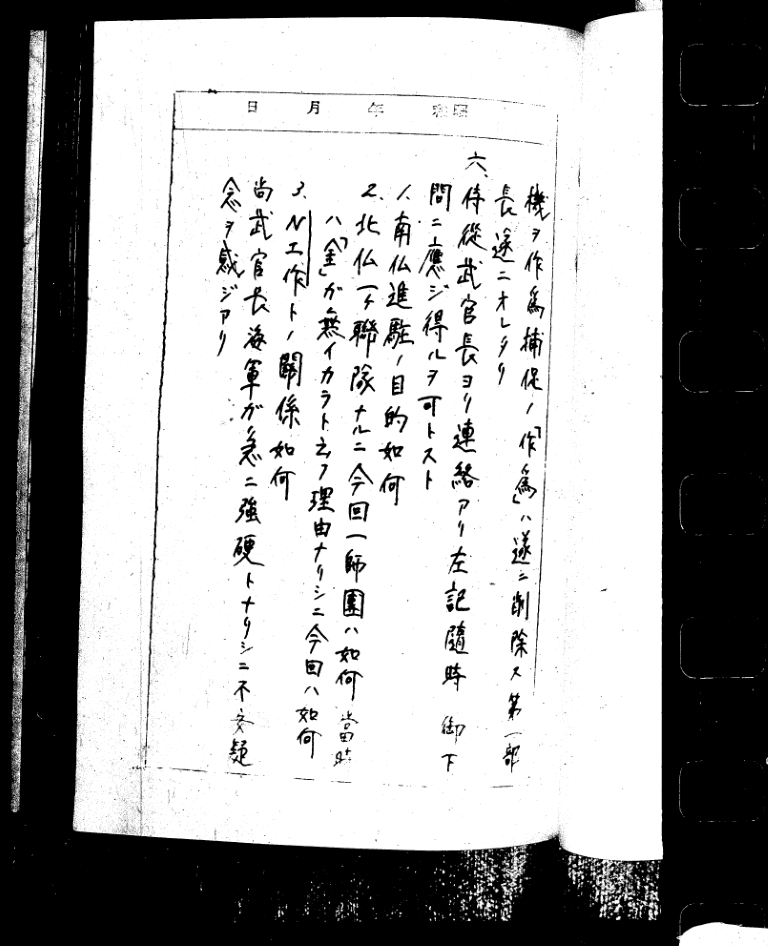 昭和 年 月 日
機ヲ作為捕促ノ「作為」ハ遂ニ削除ス第一部
長遂ニオレタリ
六、侍從武官長ヨリ連絡アリ左記隨時御下
問ニ應ジ得ルヲ可トスト
1、南仏進駐ノ目的如何
2、北仏一ケ聯隊ナルニ今回一師團ハ如何 當時
ハ「金」ガ無イカラト云フ理由ナリシニ今回ハ如何
3、N工作トノ關係如何
尚武官長海軍ガ急ニ強硬トナリシニ不安疑
念ヲ感ジアリ